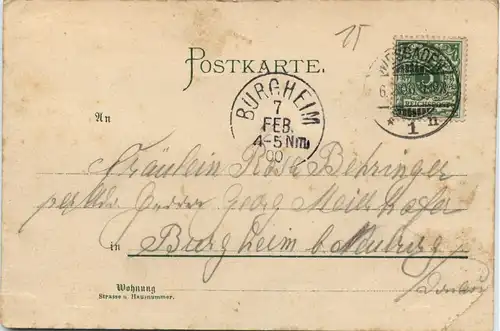 15
POSTKARTE.
WIESBADEN
6.
* 1 n
BURGHEIM
7
FEB.
4-5 Nm
00
An
Fräulein Rose Behringer
per Adr. Georg
in Burgheim b. Neuburg
Wohnung
Strasse u. Hausnummer.